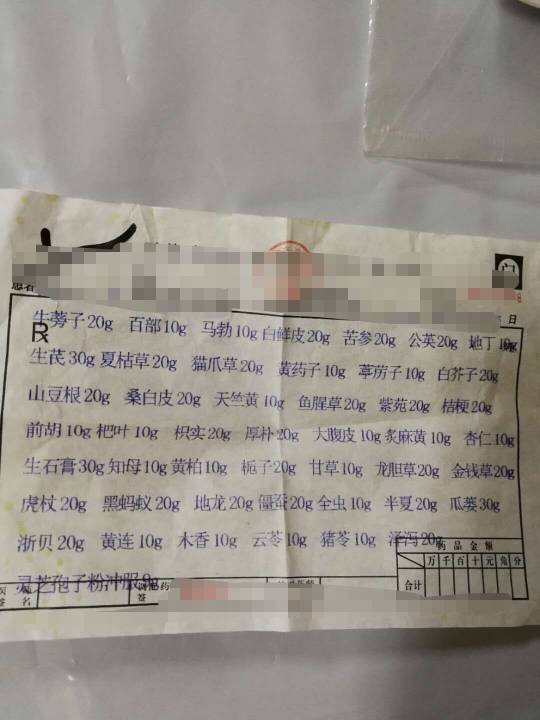 门
日
牛蒡子20g 百部10g 马勃10g 白鲜皮20g 苦参20g 公英20g 地丁10g
R
生芪30g 夏枯草20g 猫爪草20g 黄药子10g 葶苈子10g 白芥子20g
山豆根20g 桑白皮20g 天竺黄10g 鱼腥草20g 紫苑20g 桔梗20g
前胡10g 杷叶10g 枳实20g 厚朴20g 大腹皮10g 炙麻黄10g 杏仁10g
生石膏30g 知母10g 黄柏10g 栀子20g 甘草10g 龙胆草20g 金钱草20g
虎杖20g 黑蚂蚁20g 地龙20g 僵蚕20g 全虫10g 半夏20g 瓜蒌30g
浙贝20g 黄连10g 木香10g 云苓10g 猪苓10g 泽泻20g
药品金额
万千百十元角分
合计
灵芝孢子粉冲服9g
签名
签